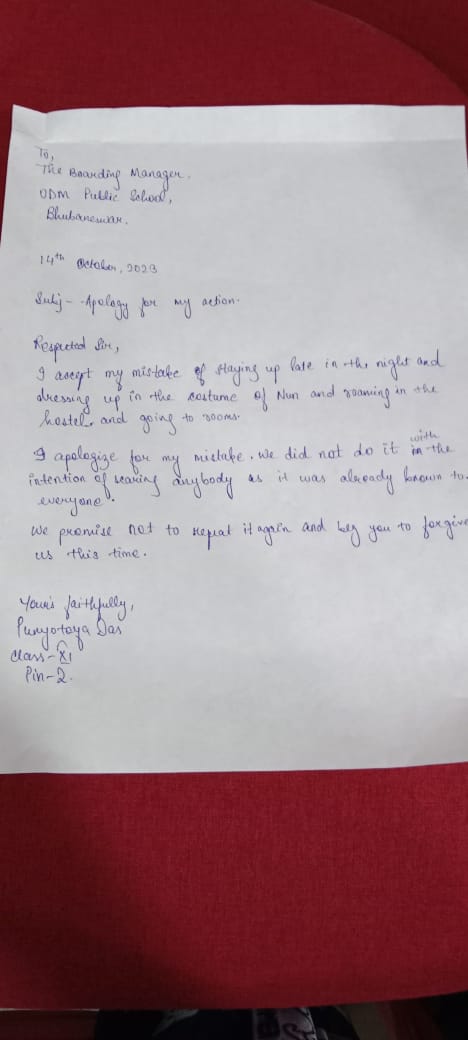 To,
The Boarding Manager.
ODM Public School,
Bhubaneswar.
14th October, 2023
Subj- -Apology for my action.
Respected Sir,
I accept my mistake of staying up late in the night and
dressing up in the costume of Nun and roaming in the
hostel, and going to rooms.
I apologize for my mistake. We did not do it with the
intention of scaring anybody as it was already known to
everyone.
We promise not to repeat it again and beg you to forgive
us this time.
Yours faithfully,
Punyotoya Das
Class-XI
Pin-2.